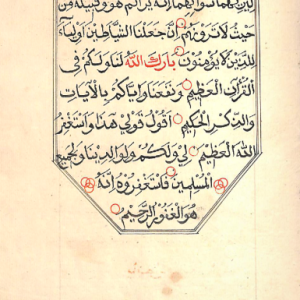 ليريهما سوآتهما انه يراكم هو وقبيله من
حيث لا ترونهم إن جعلنا الشياطين أولياء
للذين لا يؤمنون بارك الله لنا ولكم في
القرآن العظيم ونفعنا وإياكم بالآيات
والذكر الحكيم أقول قولي هذا واستغفر
الله العظيم لي ولكم ولوالدينا ولجميع
المسلمين فاستغفروه إنه
هو الغفور الرحيم